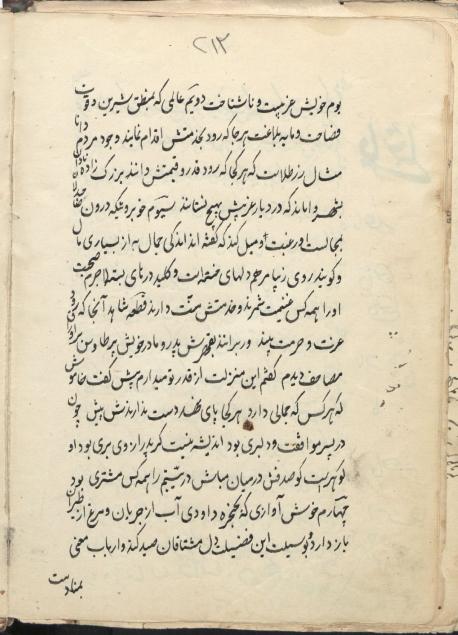 ۲۱۳
بوم خویش غریبست و ناشناخت دویم عالمی که بمنطق شیرین و قوت
فصاحت و مایه بلاغت هر جا که رود بخدمتش اقدام نمایند وجود مردم دانا
مثال زر طلاست که هر کجا که رود قدر و قیمتش دانند بزرگ زاده نادان
بشهر و اماند که در دیار غریبش بهیچ نستانند سیوم خوبروئیکه درون صاحبدلان
بمجالست او رغبت و میل کند که گفته اند اندکی جمال به از بسیاری مال
و گویند روی زیبا مرهم دلهای خسته است و کلید درهای بسته لاجرم صحبت
او را همه کس غنیمت شمرند و خدمتش منت دارند قطعه شاهد آنجا که رود
عزت و حرمت بیند ور برانند بقهرش پدر و مادر خویش پر طاوس در اوراق
مصاحف دیدم گفتم این منزلت از قدر تو می دارم بیش گفت خاموش
که هر کس که جمالی دارد هر کجا پای نهد دست بدارندش پیش چون
در پسر موافقت و دلبری بود اندیشه نیست گر پدر از وی بری بود او
گوهریست گو صدفش در میان مباش در یتیم را همه کس مشتری بود
چهارم خوش آوازی که بحنجره داودی آب از جریان و مرغ از طیران
باز دارد و بوسیلت این فضیلت دل مشتاقان صید کند و ارباب معنی
بمنادمت